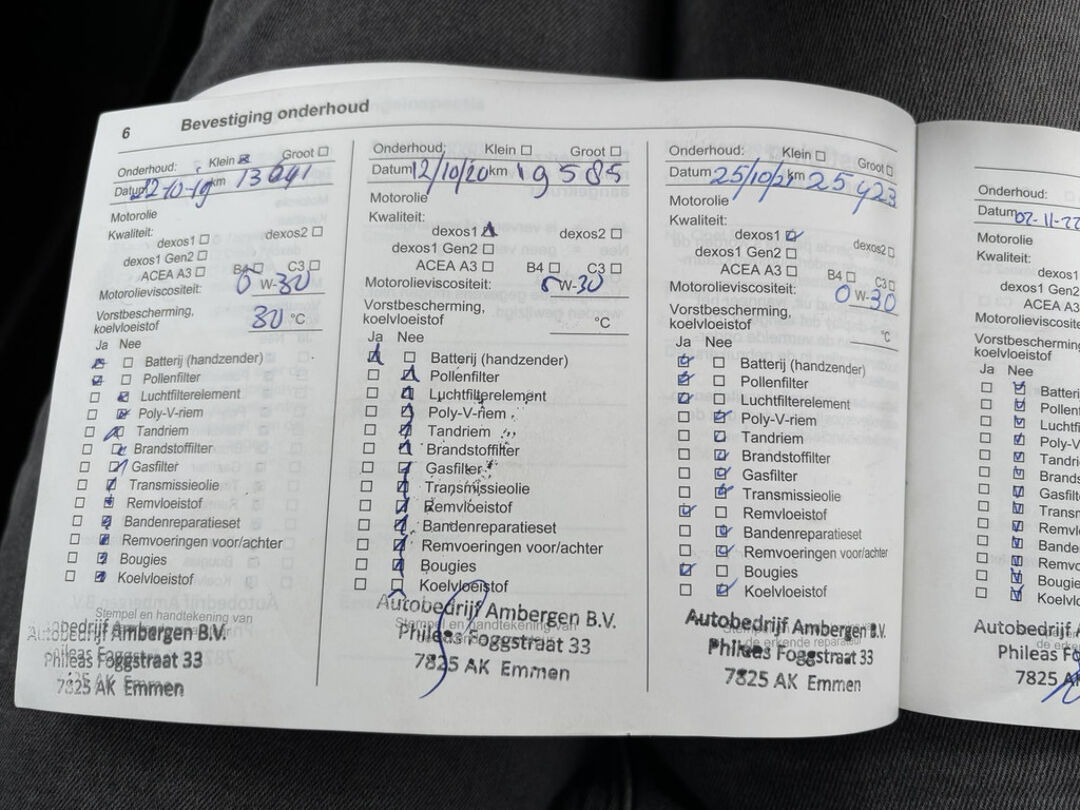 6 Bevestiging onderhoud
Onderhoud: Klein ☒ Groot ☐
Datum 22-10-19 km 13041
Motorolie
Kwaliteit:
dexos1 ☐ dexos2 ☐
dexos1 Gen2 ☐
ACEA A3 ☐ B4 ☐ C3 ☐
Motorolieviscositeit: 0 W-30
Vorstbescherming,
koelvloeistof 30 °C
Ja Nee
☒ ☐ Batterij (handzender)
☑ ☐ Pollenfilter
☐ ☑ Luchtfilterelement
☐ ☑ Poly-V-riem
☐ ☑ Tandriem
☐ ☑ Brandstoffilter
☐ ☑ Gasfilter
☐ ☑ Transmissieolie
☐ ☑ Remvloeistof
☐ ☑ Bandenreparatieset
☐ ☑ Remvoeringen voor/achter
☐ ☑ Bougies
☐ ☑ Koelvloeistof
Stempel en handtekening van
Autobedrijf Ambergen B.V.
Phileas Foggstraat 33
7825 AK Emmen
Onderhoud: Klein ☐ Groot ☐
Datum 12/10/20 km 19585
Motorolie
Kwaliteit:
dexos1 ☑ dexos2 ☐
dexos1 Gen2 ☐
ACEA A3 ☐ B4 ☐ C3 ☐
Motorolieviscositeit: W-30
Vorstbescherming,
koelvloeistof °C
Ja Nee
☑ ☐ Batterij (handzender)
☐ ☑ Pollenfilter
☐ ☑ Luchtfilterelement
☐ ☑ Poly-V-riem
☐ ☑ Tandriem
☐ ☑ Brandstoffilter
☐ ☑ Gasfilter
☐ ☑ Transmissieolie
☐ ☑ Remvloeistof
☐ ☑ Bandenreparatieset
☐ ☑ Remvoeringen voor/achter
☐ ☑ Bougies
☐ ☑ Koelvloeistof
Autobedrijf Ambergen B.V.
Stempel en handtekening van
Phileas Foggstraat 33
7825 AK Emmen
Onderhoud: Klein ☐ Groot ☐
Datum 25/10/21 km 25423
Motorolie
Kwaliteit:
dexos1 ☑ dexos2 ☐
dexos1 Gen2 ☐
ACEA A3 ☐ B4 ☐ C3 ☐
Motorolieviscositeit: 0 W-30
Vorstbescherming,
koelvloeistof °C
Ja Nee
☑ ☐ Batterij (handzender)
☑ ☐ Pollenfilter
☑ ☐ Luchtfilterelement
☐ ☑ Poly-V-riem
☐ ☑ Tandriem
☐ ☑ Brandstoffilter
☐ ☑ Gasfilter
☐ ☑ Transmissieolie
☑ ☐ Remvloeistof
☐ ☑ Bandenreparatieset
☐ ☑ Remvoeringen voor/achter
☑ ☐ Bougies
☐ ☑ Koelvloeistof
Autobedrijf Ambergen B.V.
de erkende reparateur
Phileas Foggstraat 33
7825 AK Emmen
Onderhoud:
Datum 02-11-22
Motorolie
Kwaliteit:
dexos1
dexos1 Gen
ACEA A3
Motorolieviscosite
Vorstbescherming,
koelvloeistof
Ja Nee
☐ ☑ Batteri
☐ ☑ Pollen
☐ ☑ Luchtf
☐ ☑ Poly-V
☐ ☑ Tandri
☐ ☑ Brands
☐ ☑ Gasfilt
☐ ☑ Transm
☐ ☑ Remvl
☐ ☑ Bande
☐ ☑ Remvo
☐ ☑ Bougie
☐ ☑ Koelvlo
Autobedrijf A
Phileas F
7825 A